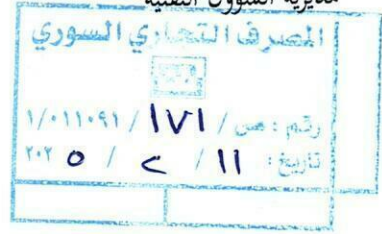 مديرية الشؤون التقنية
المصرف التجاري السوري
رقم: ص / ١٧١ / ١/٠١١٠٩١
تاريخ: ١١ / ٢ / ٢٠٢٥